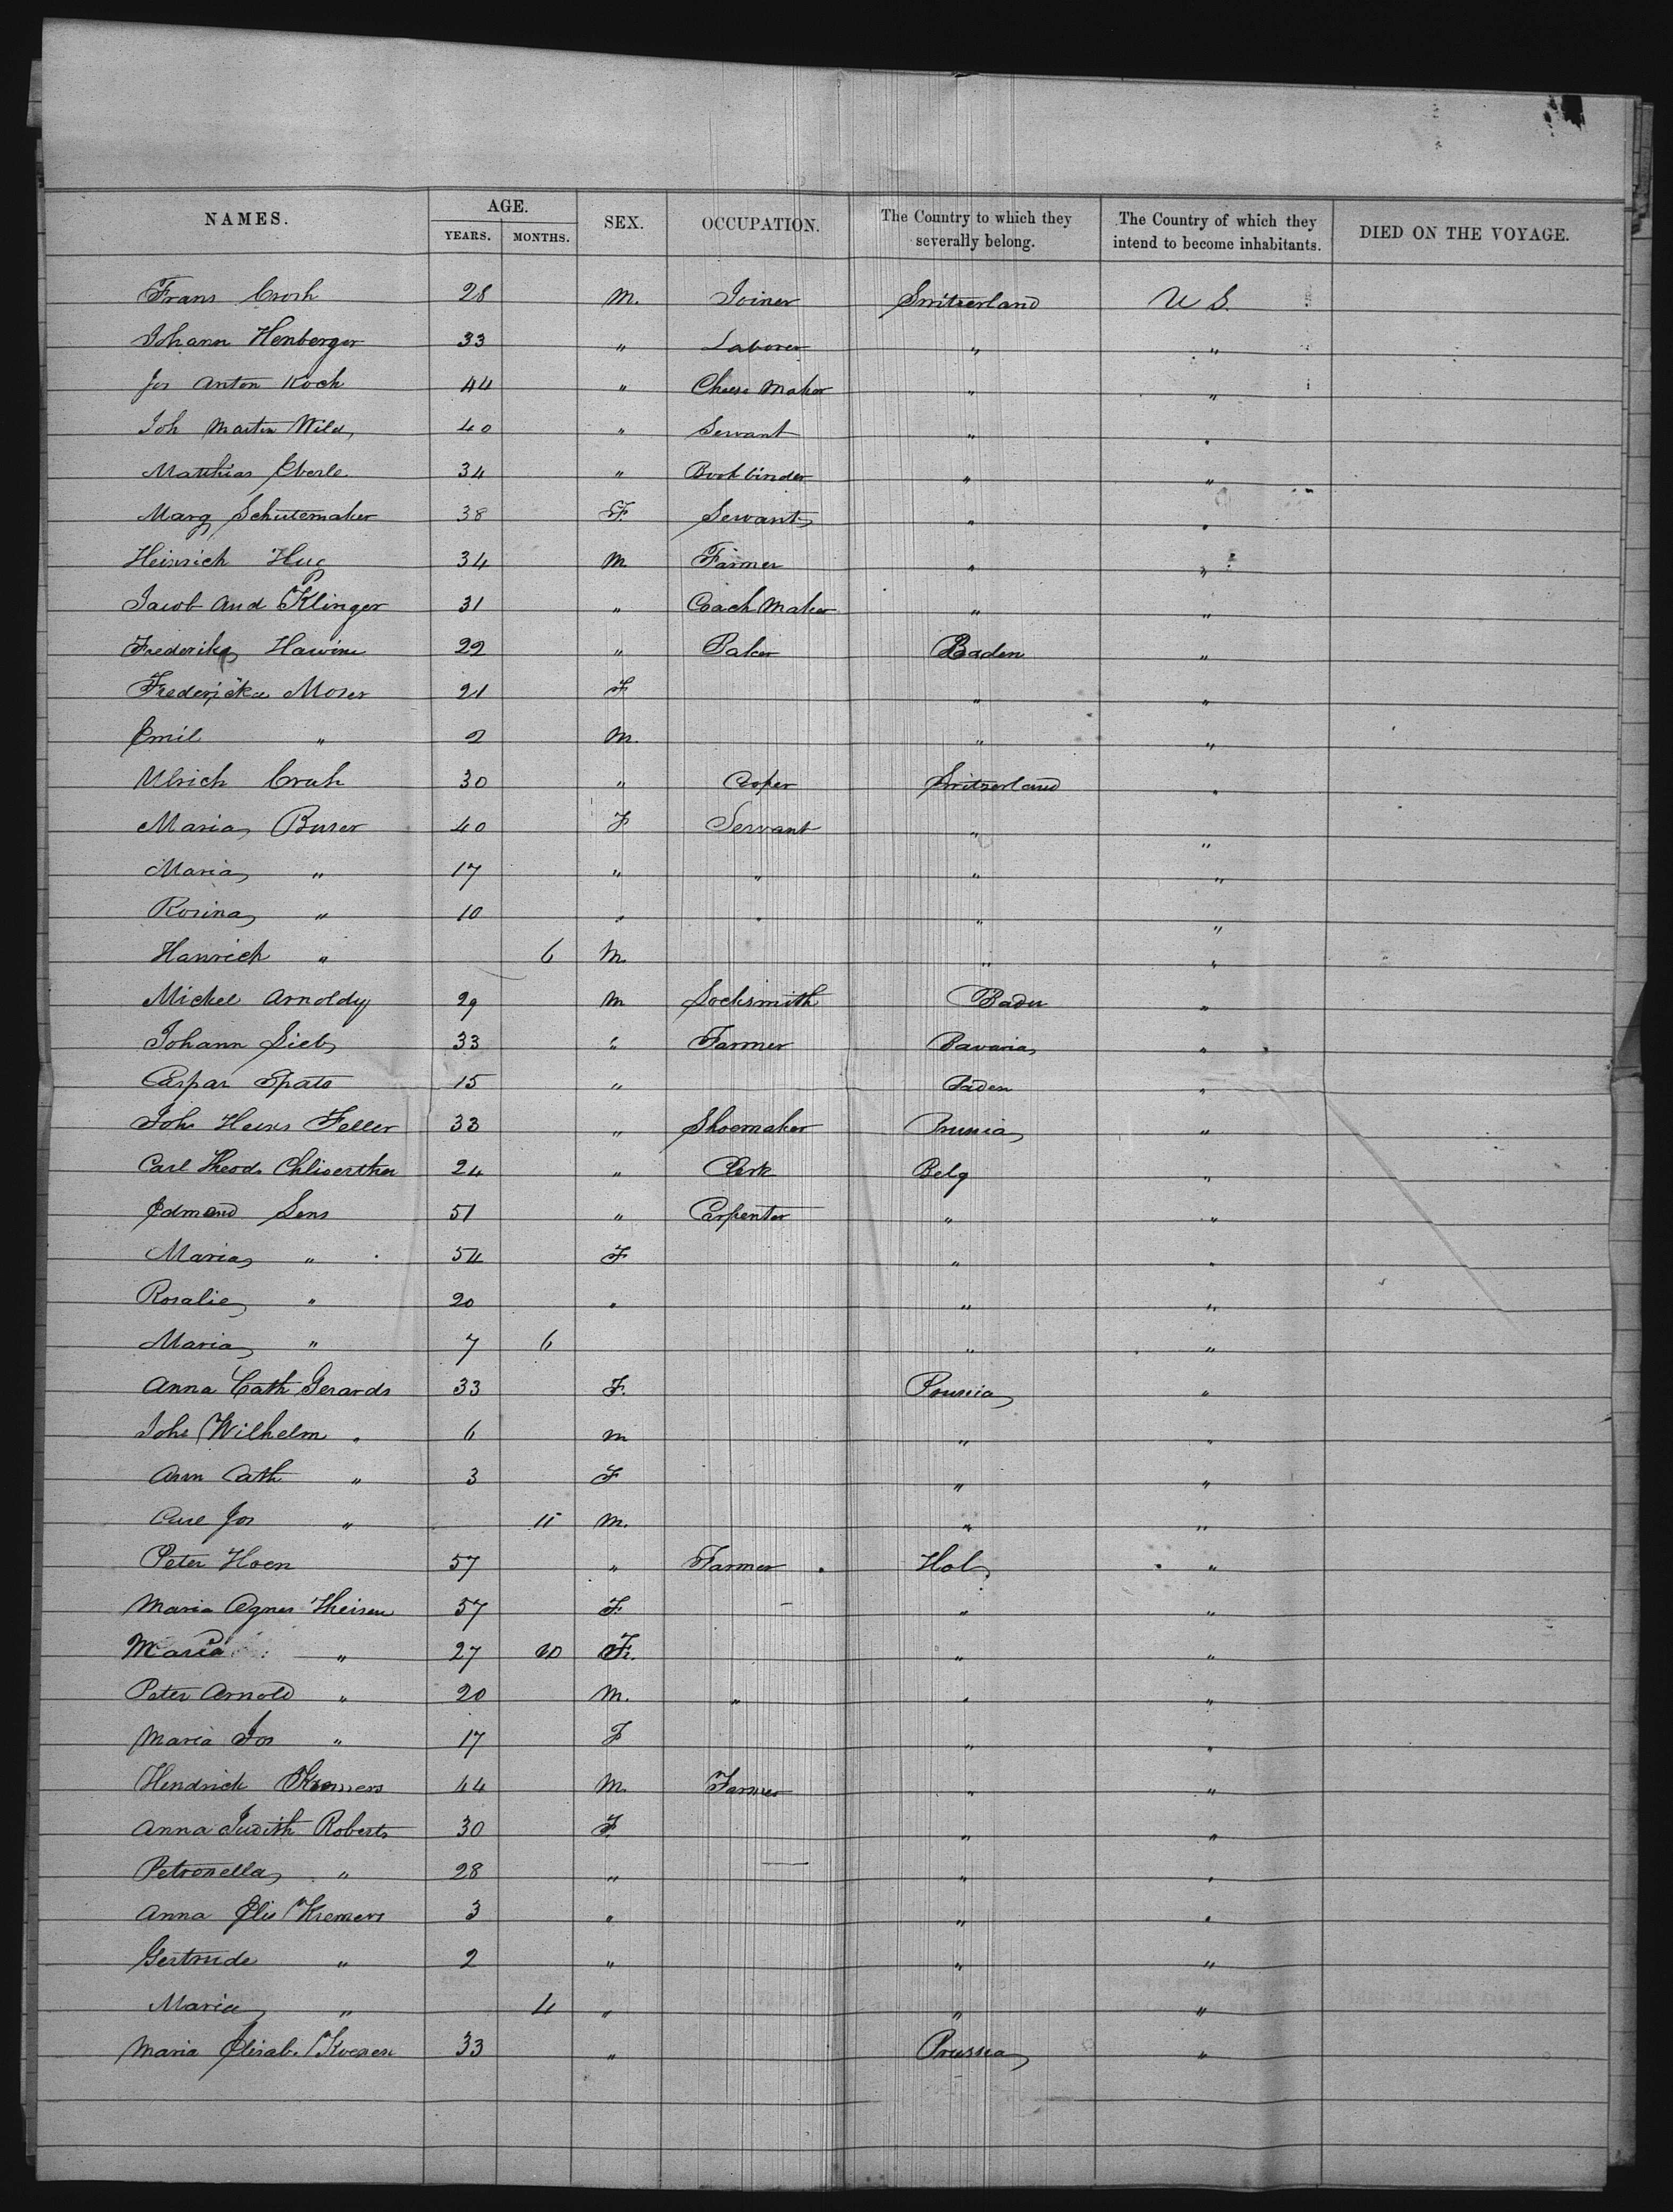 NAMES. AGE. SEX. OCCUPATION. The Country to which they severally belong. The Country of which they intend to become inhabitants. DIED ON THE VOYAGE.
YEARS. MONTHS.
Frans 28 M. Joiner Switzerland U S.
Johann Henberger 33 " Laborer " "
Jos Anton Koch 44 " Cheese Maker " "
Joh Martin Wild 40 " Servant " "
Matthias Eberle 34 " Bookbinder " "
Marg Schutemaker 38 F. Servant " "
Heinrich Hug 34 M Farmer " "
Jacob And Klinger 31 " Coach Maker " "
Frederika 22 " Baker Baden "
Fredericka Moser 21 F " "
Emil " 2 M. " "
Ulrich 30 " Cooper Switzerland "
Maria Buser 40 F Servant " "
Maria " 17 " " " "
Rosina " 10 " " " "
Hanrich " 6 M. " "
Michel Arnoldy 29 M Locksmith Baden "
Johann Sieb 33 " Farmer Bavaria "
Caspar Spats 15 " Baden "
Joh Feller 33 " Shoemaker Prussia "
Carl Theod 24 " Clerk Belg "
Edmond Sens 51 " Carpenter " "
Maria " 54 F " "
Rosalie " 20 " " "
Maria " 7 6 " "
Anna Cath Gerards 33 F. Prussia "
Joh Wilhelm " 6 M " "
Ann Cath " 3 F " "
Carl Jos " 11 M. " "
Peter Hoen 57 " Farmer Hol "
Maria Agnes Theisen 57 F. " "
Maria " 27 10 F. " "
Peter Arnold " 20 M. " " "
Maria Jos " 17 F " "
Hendrick Kremers 44 M. Farmer " "
Anna Judith Roberts 30 F. " "
Petronella " 28 " " "
Anna Elis Kremers 3 " " "
Gertrude " 2 " " "
Maria " 4 " " "
Maria Elisab. Koenen 33 " Prussia "